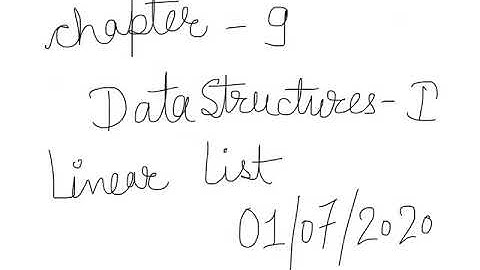 chapter - 9
Data Structures - I
Linear List
01/07/2020